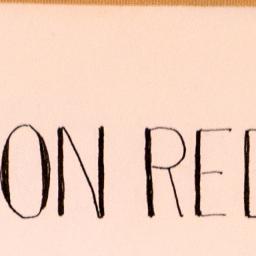 ON RE